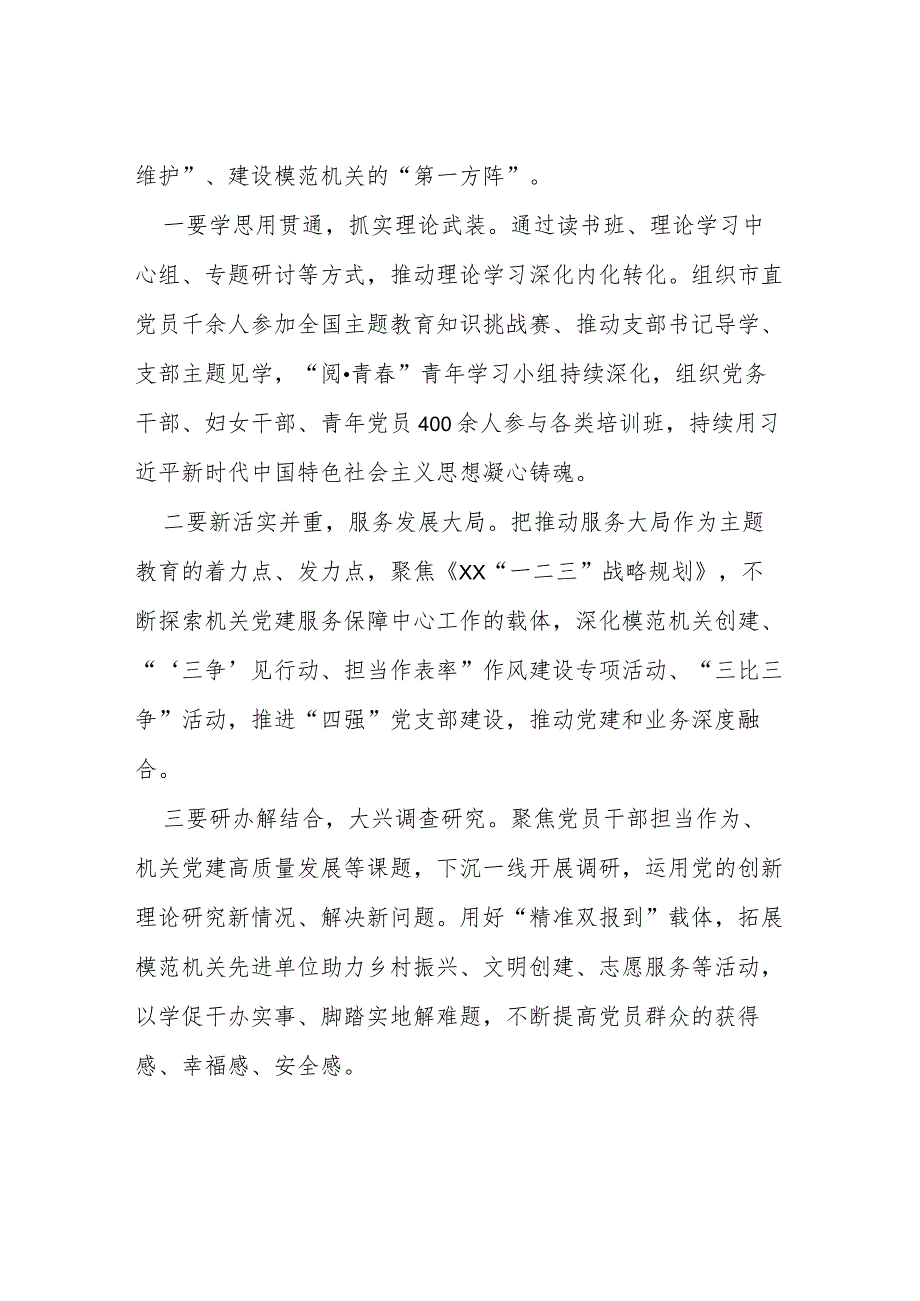 维护”、建设模范机关的“第一方阵”。
一要学思用贯通，抓实理论武装。通过读书班、理论学习中
心组、专题研讨等方式，推动理论学习深化内化转化。组织市直
党员千余人参加全国主题教育知识挑战赛、推动支部书记导学、
支部主题见学，“阅•青春”青年学习小组持续深化，组织党务
干部、妇女干部、青年党员400余人参与各类培训班，持续用习
近平新时代中国特色社会主义思想凝心铸魂。
二要新活实并重，服务发展大局。把推动服务大局作为主题
教育的着力点、发力点，聚焦《XX“一二三”战略规划》，不
断探索机关党建服务保障中心工作的载体，深化模范机关创建、
“‘三争’见行动、担当作表率”作风建设专项活动、“三比三
争”活动，推进“四强”党支部建设，推动党建和业务深度融
合。
三要研办解结合，大兴调查研究。聚焦党员干部担当作为、
机关党建高质量发展等课题，下沉一线开展调研，运用党的创新
理论研究新情况、解决新问题。用好“精准双报到”载体，拓展
模范机关先进单位助力乡村振兴、文明创建、志愿服务等活动，
以学促干办实事、脚踏实地解难题，不断提高党员群众的获得
感、幸福感、安全感。